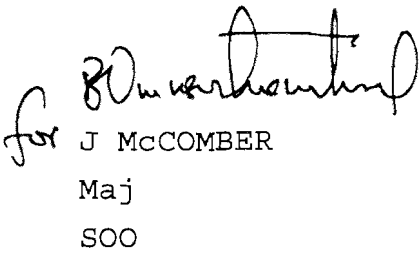 for J McCOMBER
Maj
SOO